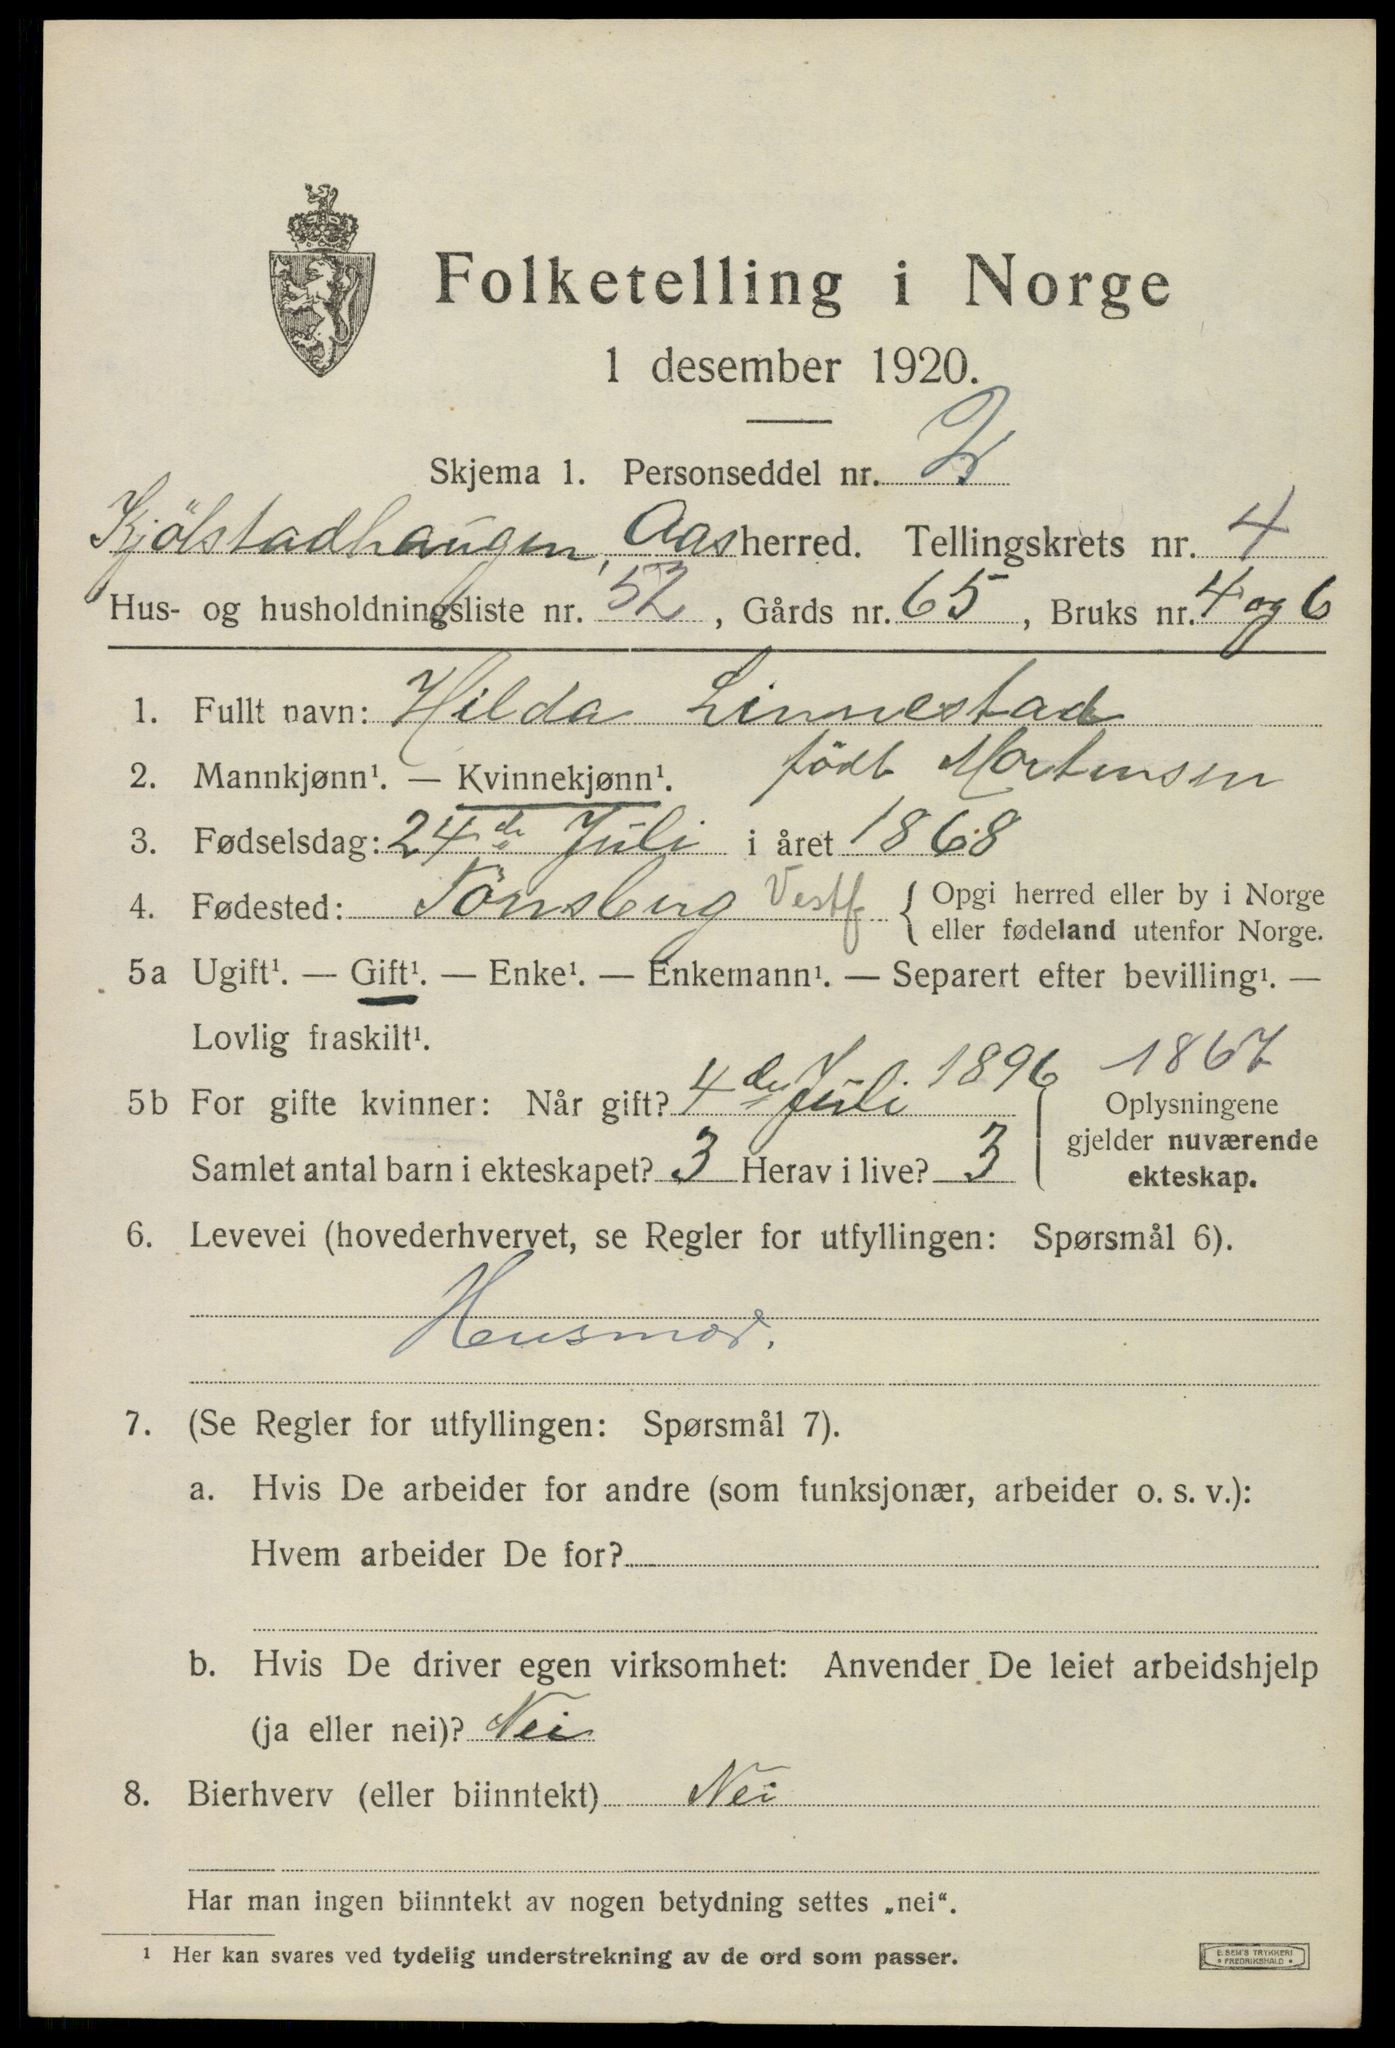 Folketelling i Norge
1 desember 1920.
Skjema 1. Personseddel nr. 2
Kjölstadhaugen, Aas herred. Tellingskrets nr. 4
Hus- og husholdningsliste nr. 52, Gårds nr. 65, Bruks nr. 4 og 6
1. Fullt navn: Hilda Linnestad
födt Mortensen
2. Mannkjønn¹. — Kvinnekjønn¹.
3. Fødselsdag: 24de Juli i året 1868
4. Fødested: Tönsberg Vestf { Opgi herred eller by i Norge
eller fødeland utenfor Norge.
5a Ugift¹. — Gift¹. — Enke¹. — Enkemann¹. — Separert efter bevilling¹. —
Lovlig fraskilt¹.
1867
5b For gifte kvinner: Når gift? 4de Juli 1896
Samlet antal barn i ekteskapet? 3 Herav i live? 3
Oplysningene
gjelder nuværende
ekteskap.
6. Levevei (hovederhvervet, se Regler for utfyllingen: Spørsmål 6).
Husmor.
7. (Se Regler for utfyllingen: Spørsmål 7).
a. Hvis De arbeider for andre (som funksjonær, arbeider o. s. v.):
Hvem arbeider De for?
b. Hvis De driver egen virksomhet: Anvender De leiet arbeidshjelp
(ja eller nei)? Nei
8. Bierhverv (eller biinntekt) Nei
Har man ingen biinntekt av nogen betydning settes „nei“.
¹ Her kan svares ved tydelig understrekning av de ord som passer.
E. SEM'S TRYKKERI
• FREDRIKSHALD •